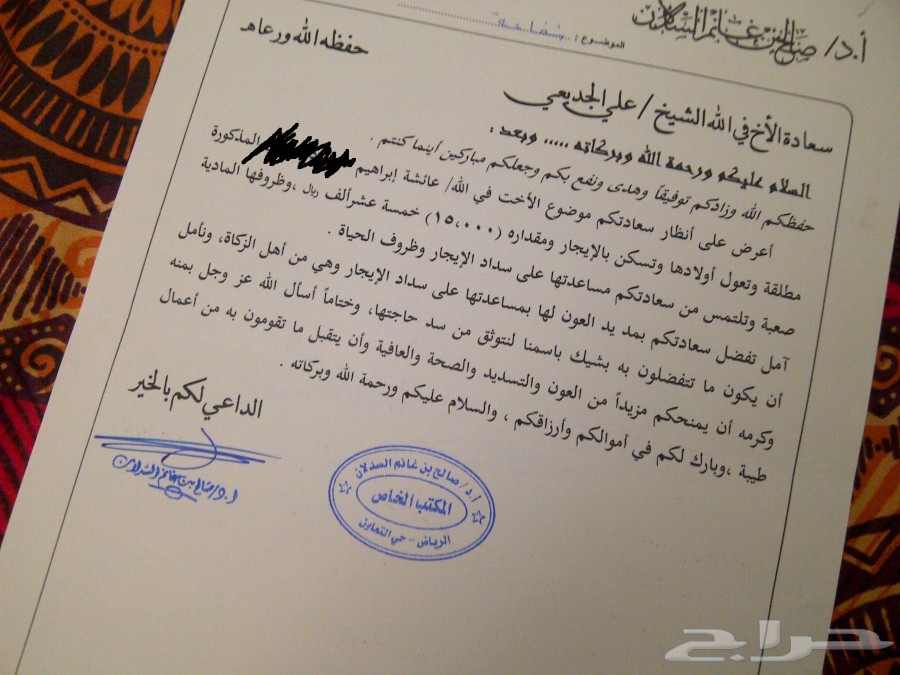 أ.د/ صالح بن غانم السدلان
الموضوع : شفاعة
سعادة الأخ في الله الشيخ / علي الجديعي حفظه الله ورعاه
السلام عليكم ورحمة الله وبركاته ..... وبعد :
حفظكم الله وزادكم توفيقاً وهدى ونفع بكم وجعلكم مباركين أينما كنتم .
أعرض على أنظار سعادتكم موضوع الأخت في الله/ عائشة إبراهيم المذكورة
مطلقة وتعول أولادها وتسكن بالإيجار ومقداره (١٥,٠٠٠) خمسة عشر ألف ريال ،وظروفها المادية
صعبة وتلتمس من سعادتكم مساعدتها على سداد الإيجار وظروف الحياة .
آمل تفضل سعادتكم بمد يد العون لها بمساعدتها على سداد الإيجار وهي من أهل الزكاة، ونأمل
أن يكون ما تتفضلون به بشيك باسمنا لنتوثق من سد حاجتها، وختاماً أسأل الله عز وجل بمنه
وكرمه أن يمنحكم مزيداً من العون والتسديد والصحة والعافية وأن يتقبل ما تقومون به من أعمال
طيبة ،وبارك لكم في أموالكم وأرزاقكم ، والسلام عليكم ورحمة الله وبركاته .
الداعي لكم بالخير
أ.د/ صالح بن غانم السدلان
أ.د/ صالح بن غانم السدلان
المكتب الخاص
الرياض - حي التعاون
حراج